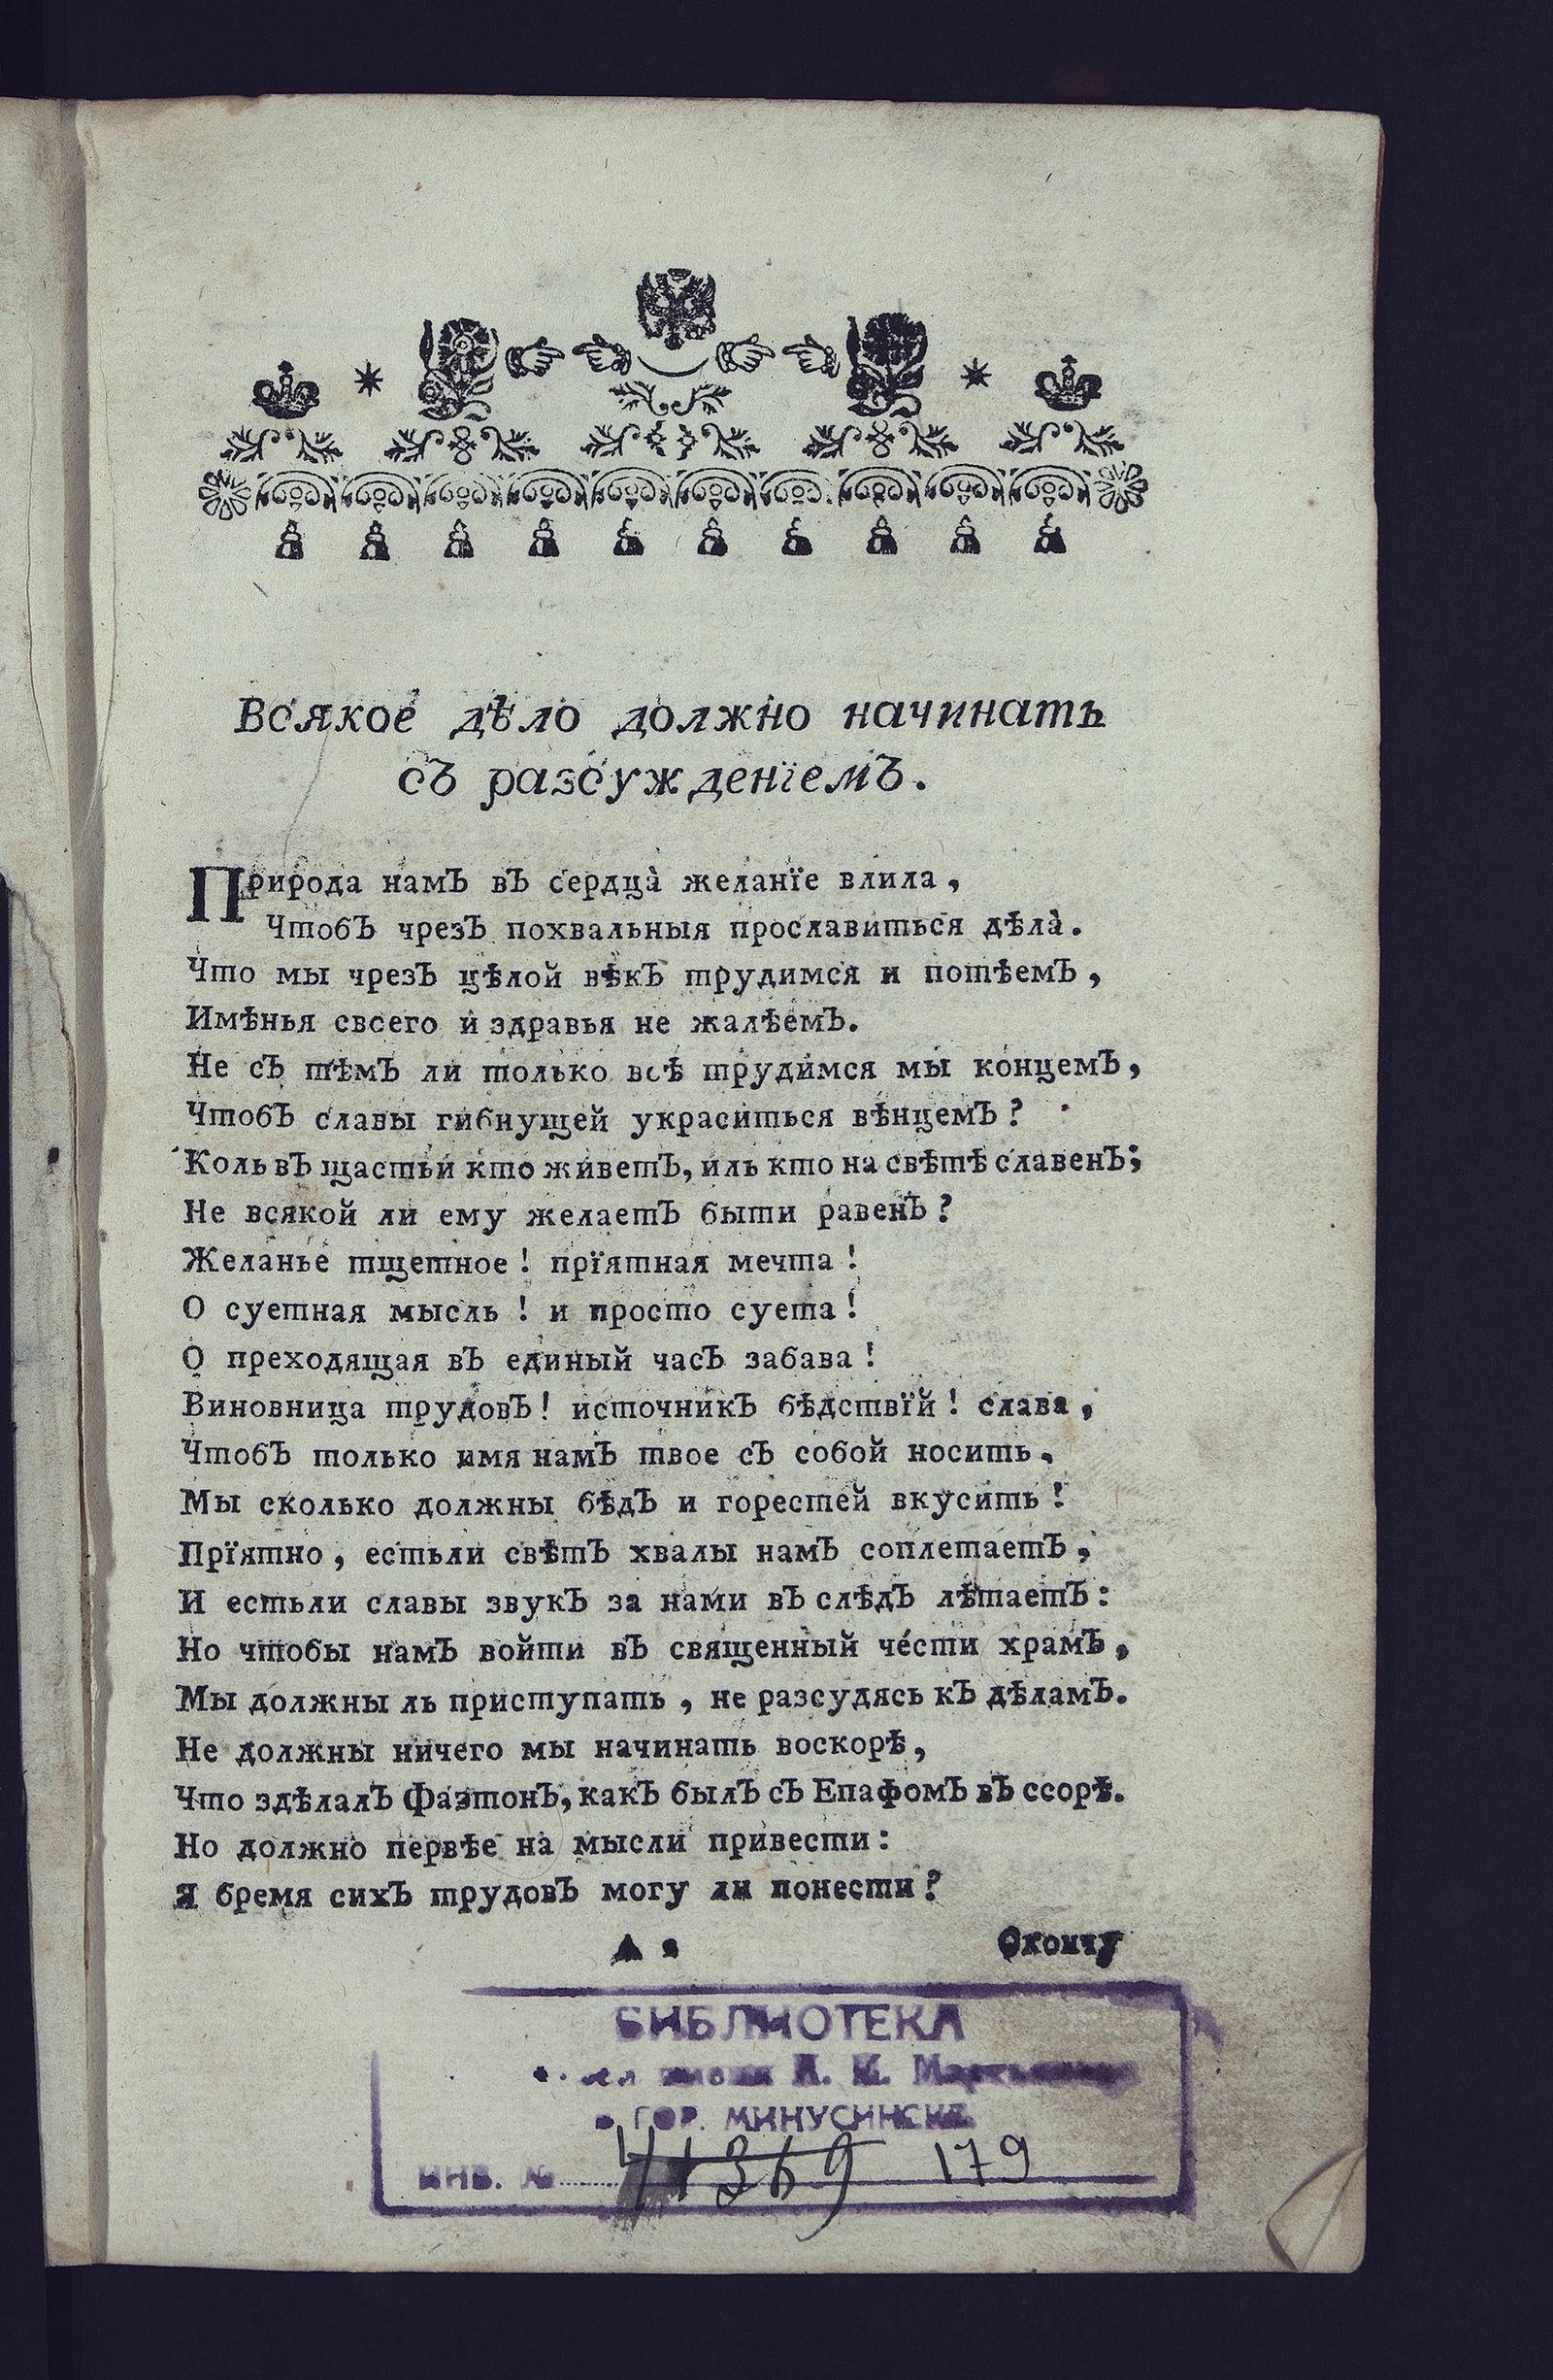 Всякое дѣло должно начинать
съ разсужденїемъ.
Природа намъ въ сердца̀ желанїе влила,
Чтобъ чрезъ похвальныя прославиться дѣла̀.
Что мы чрезъ цѣлой вѣкъ трудимся и потѣемъ,
Имѣнья своего и здравья не жалѣемъ.
Не съ тѣмъ ли только всѣ трудимся мы концемъ,
Чтобъ славы гибнущей украситься вѣнцемъ?
Коль въ щастьи кто живетъ, иль кто на свѣтѣ славенъ;
Не всякой ли ему желаетъ быти равенъ?
Желанье тщетное! прїятная мечта!
О суетная мысль! и просто суета!
О преходящая въ единый часъ забава!
Виновница трудовъ! источникъ бѣдствїй! слава,
Чтобъ только имя намъ твое съ собой носить,
Мы сколько должны бѣдъ и горестей вкусить!
Прїятно, естьли свѣтъ хвалы намъ соплетаетъ,
И естьли славы звукъ за нами въ слѣдъ лѣтаетъ:
Но чтобы намъ войти въ священный че́сти храмъ,
Мы должны ль приступать, не разсудясь къ дѣламъ.
Не должны ничего мы начинать воскорѣ,
Что здѣлалъ Фаэтонъ, какъ былъ съ Епафомъ въ ссорѣ.
Но должно первѣе на мысли привести:
Я бремя сихъ трудовъ могу ли понести?
Окончу
БИБЛИОТЕКА
имени
ГОР. МИНУСИНСКЕ
ИНВ. № 41369 179